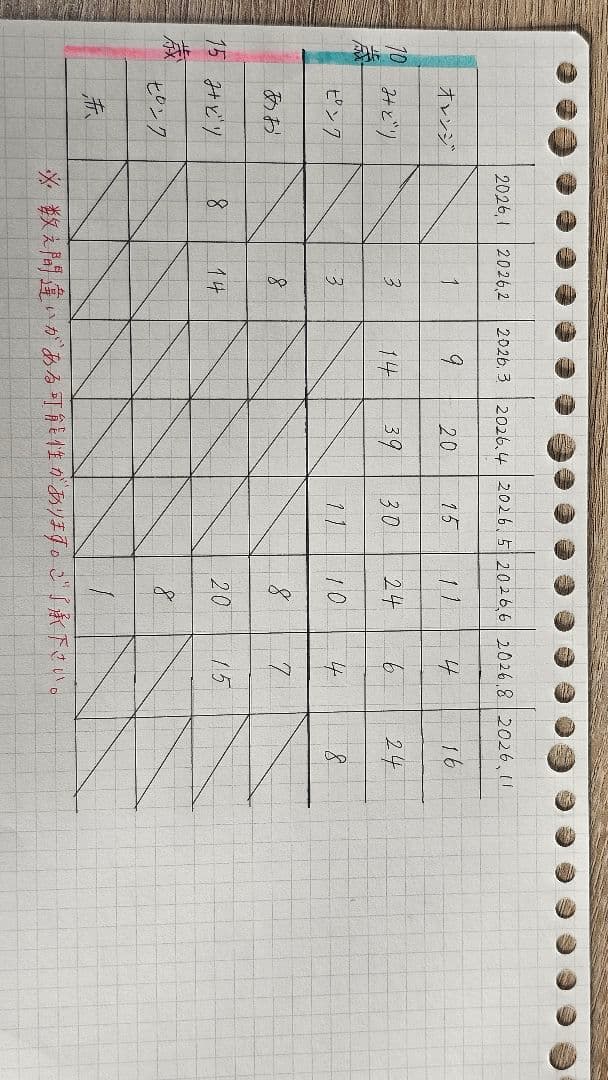 2026.1 2026.2 2026.3 2026.4 2026.5 2026.6 2026.8 2026.11
オレンジ 1 9 20 15 11 4 16
10歳 みどり 3 14 39 30 24 6 24
ピンク 3 11 10 4 8
あお 8 8 7
15歳 みどり 8 14 20 15
ピンク 8
赤 1
※ 数え間違いがある可能性があります。ご了承下さい。